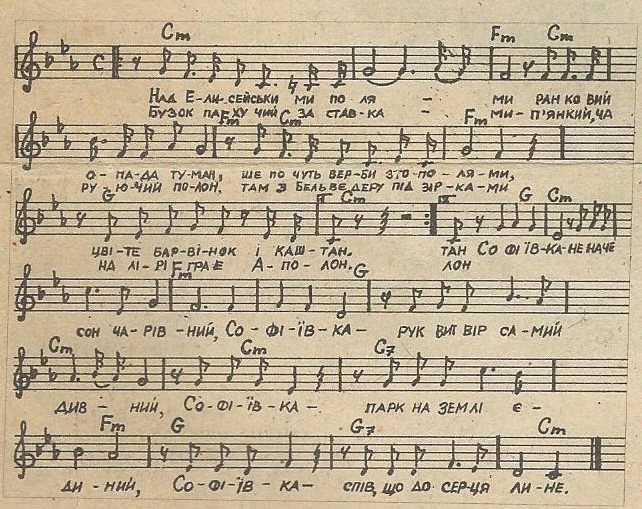 Cm Fm Cm
НАД Е-ЛИ-СЕЙСЬКИ МИ ПО ЛЯ - МИ РАН КО ВИЙ
БУЗОК ПАХУ ЧИЙ ЗА СТАВ-КА - МИ-П'ЯНКИЙ, ЧА
Fm Cm Fm
О-ПА-ДА ТУ-МАН, ШЕ ПО ЧУТЬ ВЕР-БИ З ТО-ПО-ЛЯ-МИ,
РУ-Ю-ЧИЙ ПО-ЛОН. ТАМ З БЕЛЬ ВЕ ДЕРУ ПІД ЗІР-КА-МИ
G I Cm II G Cm
ЦВІ-ТЕ БАР-ВІ-НОК І КАШ-ТАН. ТАН СО ФІ ЇВ-КА-НЕ НАЧЕ
НА ЛІ-РІ ГРАЄ А-ПО-ЛОН. ЛОН
Fm G
СОН ЧА-РІВ-НИЙ, СО-ФІ-ЇВ-КА- РУК ВИТ ВІР СА-МИЙ
Cm Cm C7
ДИВ-НИЙ, СО-ФІ-ЇВ-КА-. ПАРК НА ЗЕМЛІ Є-
Fm G G7 Cm
ДИ-НИЙ, СО-ФІ-ЇВ-КА- СПІВ, ЩО ДО СЕР-ЦЯ ЛИ-НЕ.